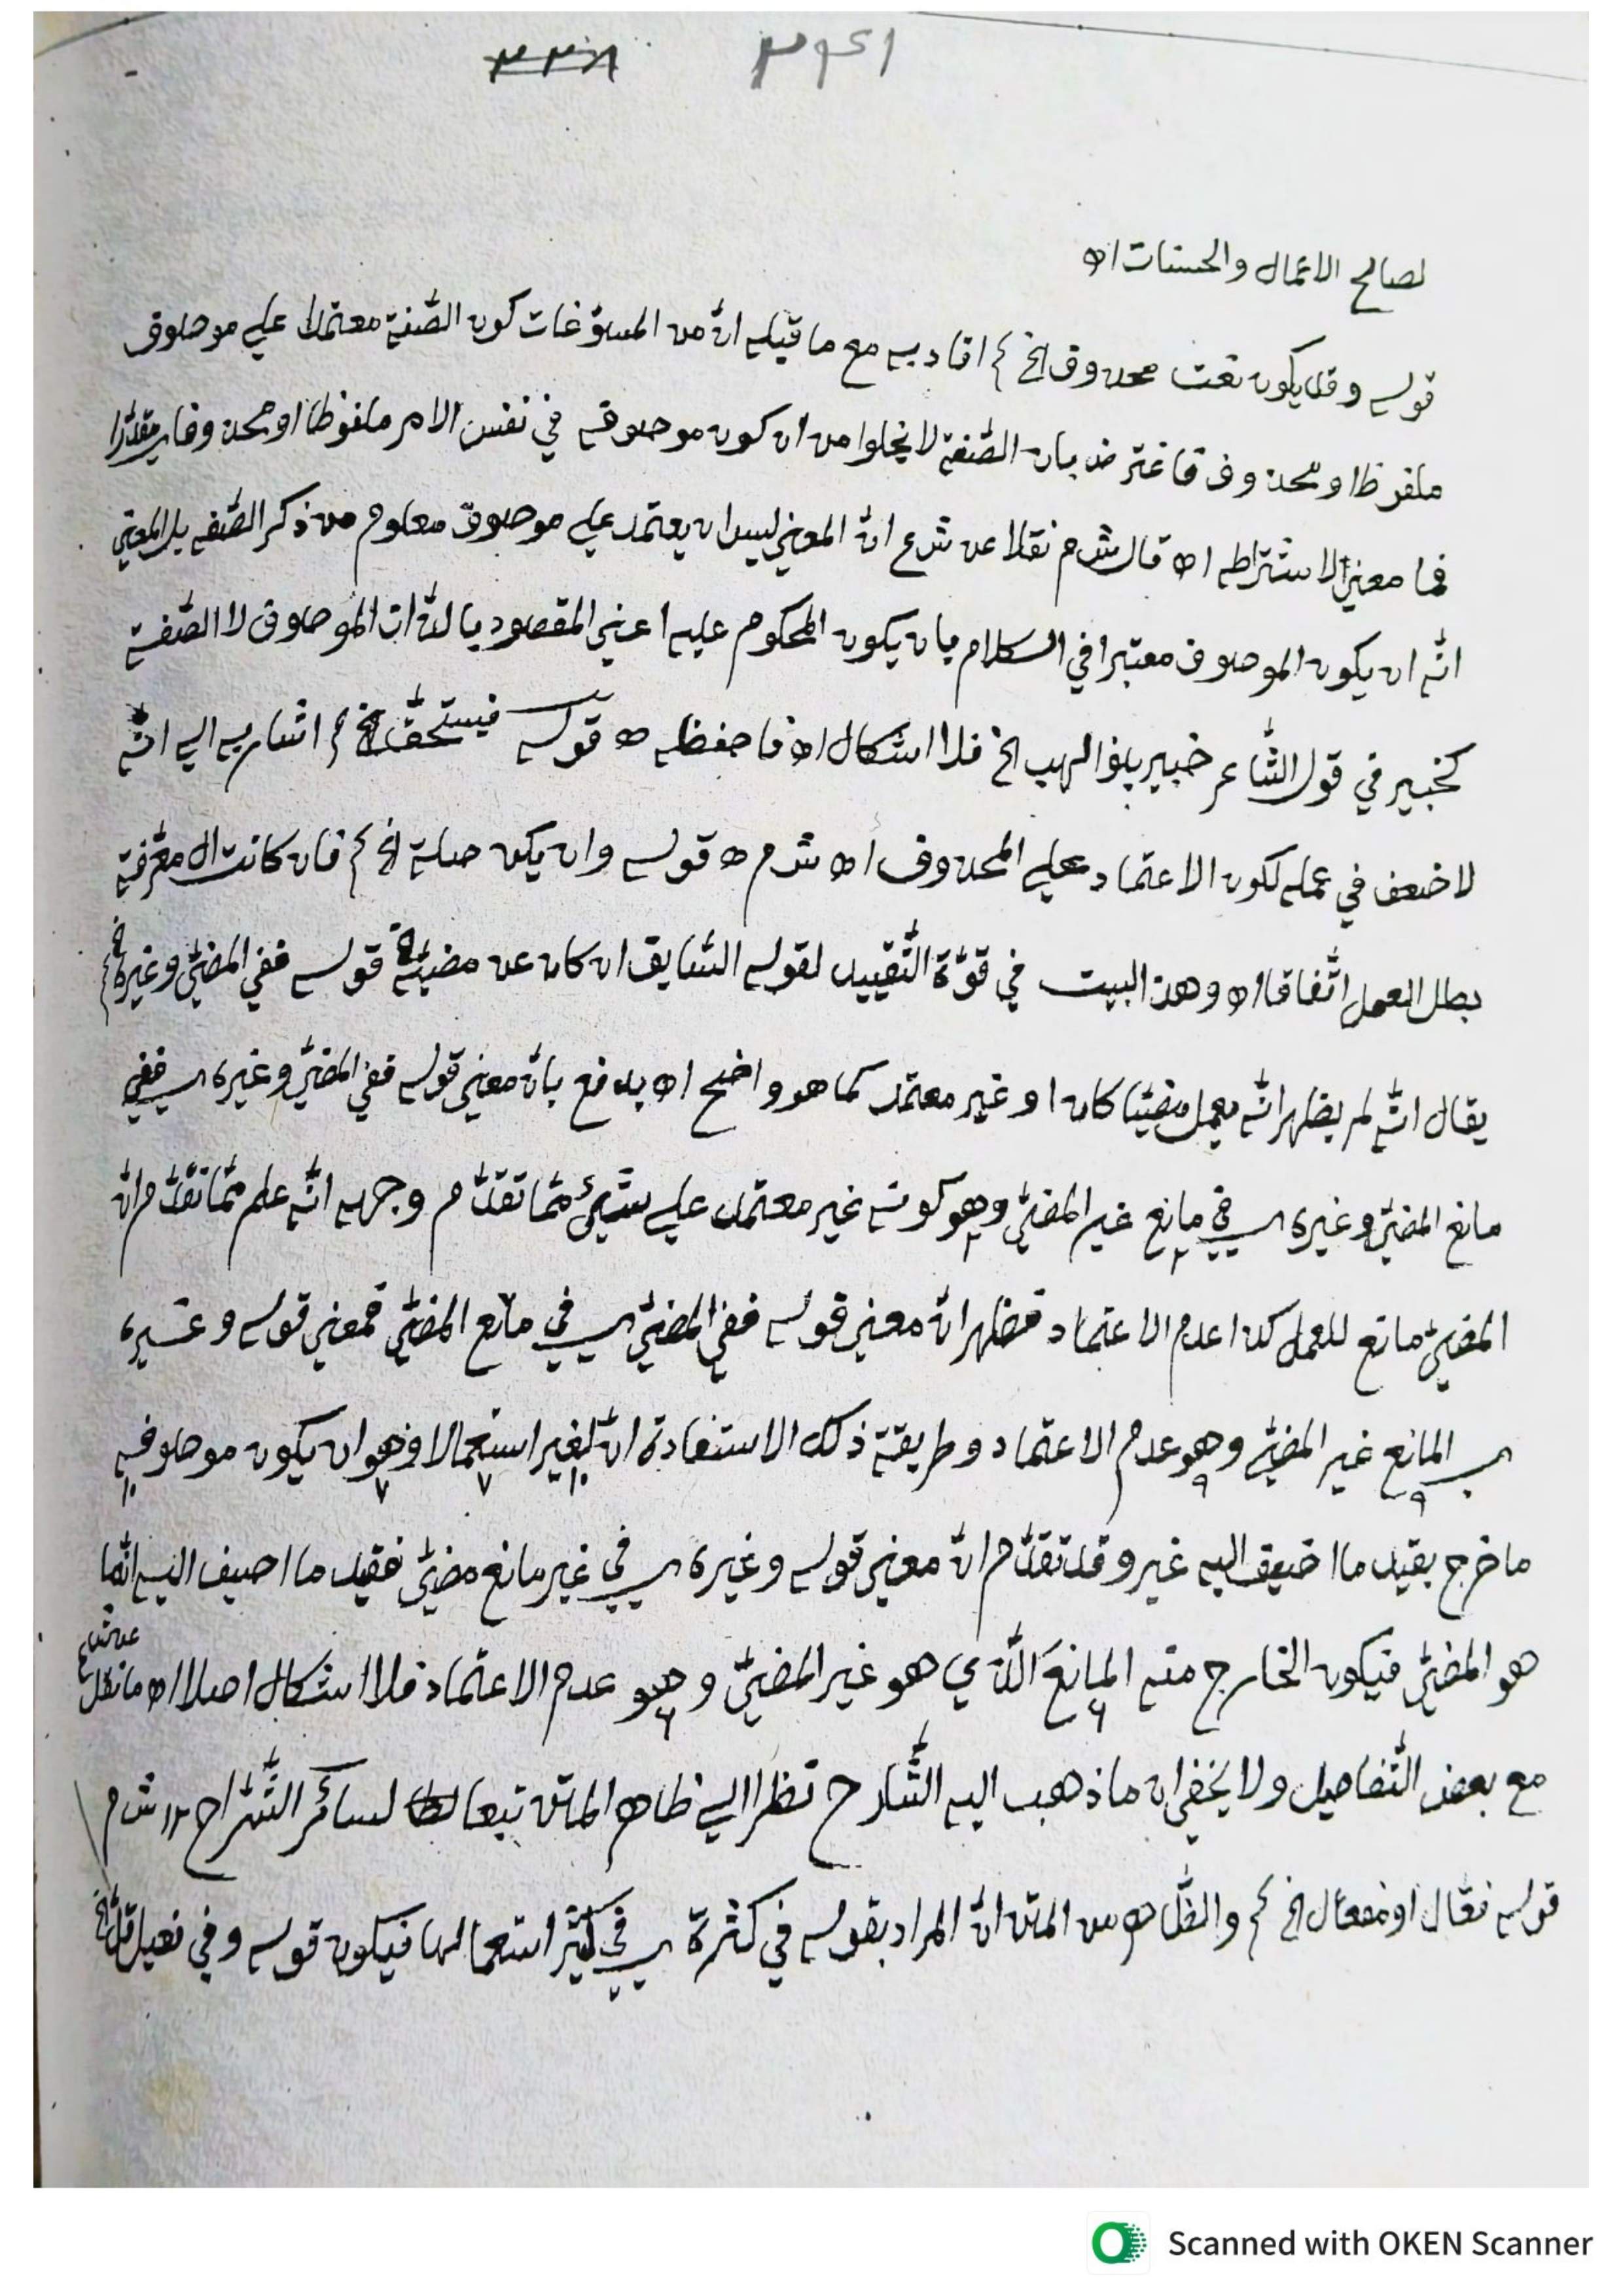 لصالح الاعمال والحسنات اه
قوله وقد يكون نعت محذوف الخ افاد به مع ما قبله انّ من المسوّغات كون الصّفة معتمدا على موصوف
ملفوظ او محذوف فاعترض بان الصّفة لا يخلوا من ان كون موصوفه في نفس الامر ملفوظا او محذوفا مقدّرا
فما معنى الاشتراطه اه قال ش م نقلا عن ش ع انّ المعنى ليس ان يعتمد على موصوف معلوم من ذكر الصّفه بل المعنى
انّه ان يكون الموصوف معتبرا في الكلام بان يكون المحكوم عليه اعني المقصود بالذّات الموصوف لا الصّفة
كخبير في قول الشّاعر خبير بنو الهب الخ فلا اشكال اه فاحفظه ه قوله فيستحقّ الخ اشار به الى انّه
لا ضعف في عمله لكون الاعتماد على المحذوف اه ش م ه قوله وان يكن صلة الخ فان كانت ال معرّفة
بطل العمل اتّفاقا اه وهذ البيت في قوّة التّقييد لقوله السّابق ان كان عن مضيّه قوله ففي المضيّ وغيره الخ
يقال انّه لم يظهر انّه يعمل مضيّا كان او غير معتمد كما هو واضح اه يدفع بانّ معنى قوله ففي المضيّ وغيره ففي
مانع المضيّ وغيره في مانع غير المضيّ وهو كونه غير معتمد على شيئ ممّا تقدّم وجهه انّه علم ممّا تقدّم انّ
المضيّ مانع للعمل كذا عدم الاعتماد فظهر انّ معنى قوله ففي المضيّ في مانع المضيّ فمعنى قوله وغيره
المانع غير المضيّ وهو عدم الاعتماد وطريقة ذلك الاستفادة انّ لغير استعمالا وهو ان يكون موصوفه
ما خرج بقيد ما اضيف اليه غير وقد تقدّم انّ معنى قوله وغيره في غير مانع مضيّ فقيد ما اضيف اليه انّما
هو المضيّ فيكون الخارج منه المانع الّذي هو غير المضيّ وهو عدم الاعتماد فلا اشكال اصلا اه ما نقل عن ش ع
مع بعض التّفاصيل ولا يخفى ان ما ذهب اليه الشّارح نظرا الى ظاهر المتن تبعا لسائر الشّراح ١٢ ش م
قوله فعّال او مفعال الخ والظّاهر من المتن انّ المراد بقوله في كثرة في كثير استعمالها فيكون قوله وفي فعيل قلّ الخ
Scanned with OKEN Scanner